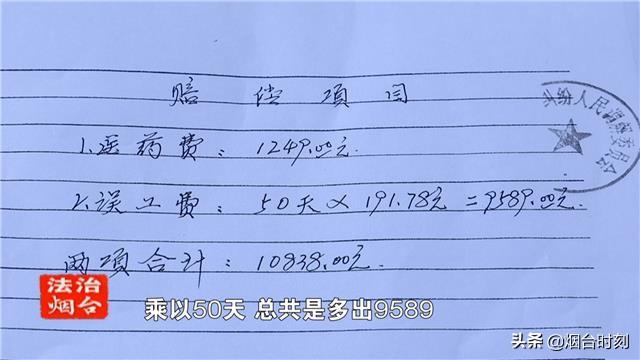 赔偿项目
1.医药费：1249.00元.
2.误工费：50天×191.78元=9589.00元.
两项合计：10838.00元.
纠纷人民调解委员会
法治
烟台
乘以50天 总共是多出9589
头条 @烟台时刻